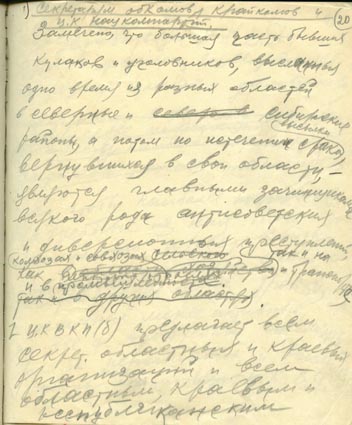 1) Секретарям обкомов, крайкомов и (20
Ц.К. нацкомпартий.
Замечено, что большая часть бывших
кулаков и уголовников, высланных
одно время из разных областей
в северные и сибирские
районы, а потом по истечении срока высылки
вернувшихся в свои области, –
являются главными зачинщиками
всякого рода антисоветских
и диверсионных преступлений,
как в колхозах и совхозах, так и на транспорте
и в
2 ЦК ВКП(б) предлагает всем
секрет. областных и краевых
организаций и всем
областным, краевым и
республиканским